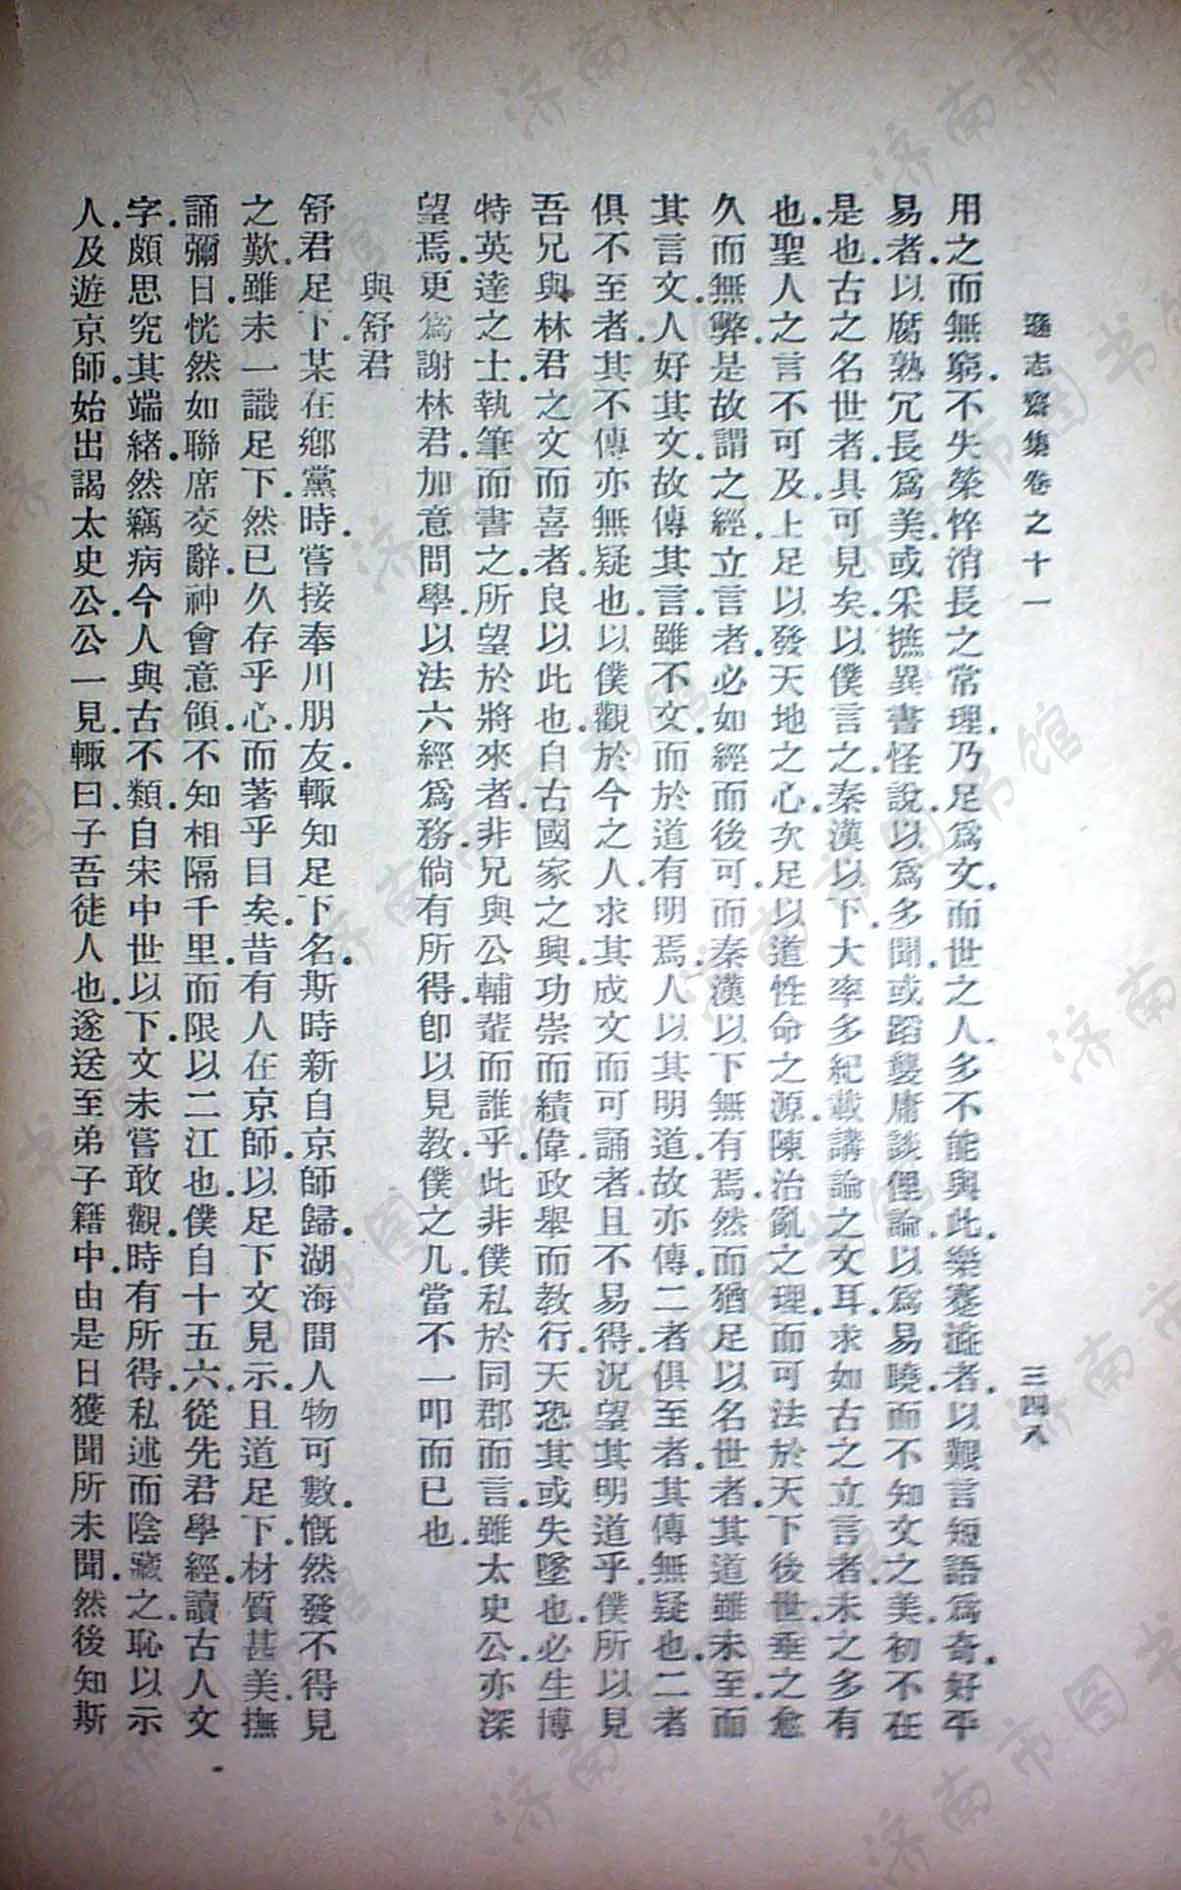 遜志齋集卷之十一
三四八
用之而無窮.不失榮悴消長之常理.乃足爲文.而世之人.多不能與此.樂蹇澁者.以艱言短語爲奇.好平
易者.以腐熟冗長爲美.或采摭異書怪說以爲多聞.或蹈襲庸談俚論.以爲易曉.而不知文之美.初不在
是也.古之名世者.具可見矣.以僕言之.秦漢以下.大率多紀載講論之文耳.求如古之立言者.未之多有
也.聖人之言不可及.上足以發天地之心.次足以道性命之源.陳治亂之理.而可法於天下後世.垂之愈
久而無弊.是故謂之經.立言者.必如經而後可.而秦漢以下無有焉.然而猶足以名世者.其道雖未至.而
其言文.人好其文.故傳其言.雖不文.而於道有明焉.人以其明道.故亦傳.二者俱至者.其傳無疑也.二者
俱不至者.其不傳亦無疑也.以僕觀於今之人.求其成文而可誦者.且不易得.況望其明道乎.僕所以見
吾兄與林君之文而喜者.良以此也.自古國家之興.功崇而績偉.政舉而教行.天恐其或失墜也.必生博
特英達之士.執筆而書之.所望於將來者.非兄與公輔輩而誰乎.此非僕私於同郡而言.雖太史公.亦深
望焉.更爲謝林君.加意問學.以法六經爲務.倘有所得.卽以見教.僕之几.當不一叩而已也.
與舒君
舒君足下.某在鄉黨時.嘗接奉川朋友.輙知足下名.斯時新自京師歸.湖海間人物可數.慨然發不得見
之歎.雖未一識足下.然已久存乎心.而著乎目矣.昔有人在京師.以足下文見示.且道足下.材質甚美.撫
誦彌日.恍然如聯席交辭.神會意領.不知相隔千里.而限以二江也.僕自十五六.從先君學經.讀古人文
字.頗思究其端緒.然竊病今人與古不類.自宋中世以下.文未嘗敢觀.時有所得.私述而陰藏之.恥以示
人.及遊京師.始出謁太史公.公一見.輙曰.子吾徒人也.遂送至弟子籍中.由是日獲聞所未聞.然後知斯